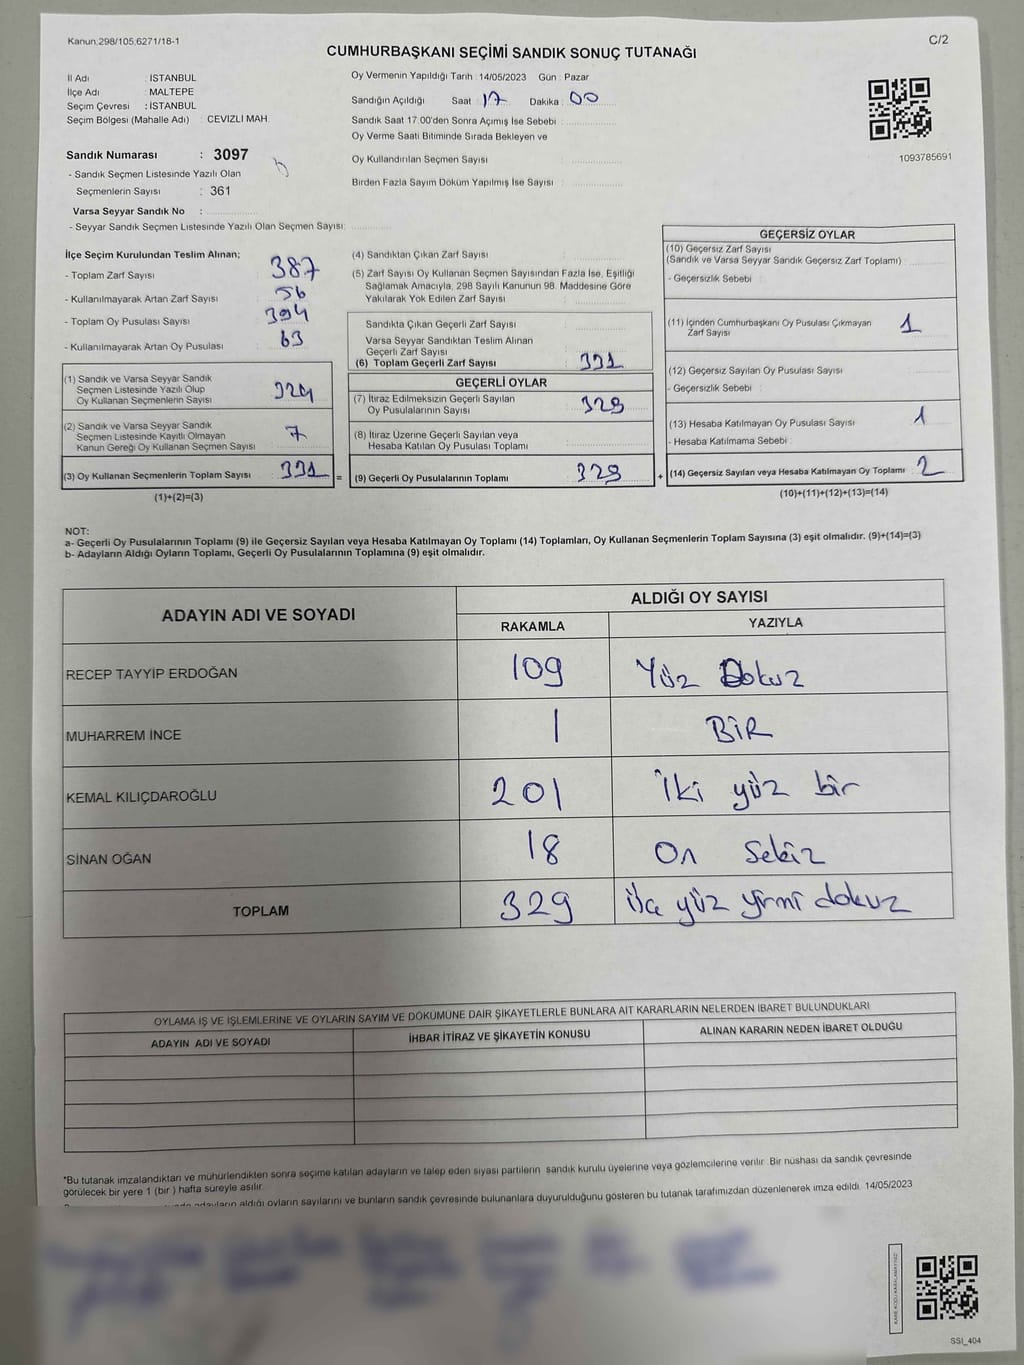 Kanun:298/105,6271/18-1
C/2
CUMHURBAŞKANI SEÇİMİ SANDIK SONUÇ TUTANAĞI
İl Adı : İSTANBUL
İlçe Adı : MALTEPE
Seçim Çevresi : İSTANBUL
Seçim Bölgesi (Mahalle Adı) : CEVİZLİ MAH.
Oy Vermenin Yapıldığı Tarih : 14/05/2023 Gün : Pazar
Sandığın Açıldığı Saat : 17 Dakika : 00
Sandık Saat 17:00'den Sonra Açımış İse Sebebi :
Oy Verme Saati Bitiminde Sırada Bekleyen ve
Oy Kullandırılan Seçmen Sayısı :
Birden Fazla Sayım Döküm Yapılmış İse Sayısı :
1093785691
Sandık Numarası : 3097
- Sandık Seçmen Listesinde Yazılı Olan
Seçmenlerin Sayısı : 361
Varsa Seyyar Sandık No :
- Seyyar Sandık Seçmen Listesinde Yazılı Olan Seçmen Sayısı:
İlçe Seçim Kurulundan Teslim Alınan;
- Toplam Zarf Sayısı : 387
- Kullanılmayarak Artan Zarf Sayısı : 56
- Toplam Oy Pusulası Sayısı : 394
- Kullanılmayarak Artan Oy Pusulası : 63
(1) Sandık ve Varsa Seyyar Sandık
Seçmen Listesinde Yazılı Olup
Oy Kullanan Seçmenlerin Sayısı : 324
(2) Sandık ve Varsa Seyyar Sandık
Seçmen Listesinde Kayıtlı Olmayan
Kanun Gereği Oy Kullanan Seçmen Sayısı : 7
(3) Oy Kullanan Seçmenlerin Toplam Sayısı : 331 =
(1)+(2)=(3)
(4) Sandıktan Çıkan Zarf Sayısı :
(5) Zarf Sayısı Oy Kullanan Seçmen Sayısından Fazla İse, Eşitliği
Sağlamak Amacıyla, 298 Sayılı Kanunun 98. Maddesine Göre
Yakılarak Yok Edilen Zarf Sayısı :
Sandıkta Çıkan Geçerli Zarf Sayısı :
Varsa Seyyar Sandıktan Teslim Alınan
Geçerli Zarf Sayısı :
(6) Toplam Geçerli Zarf Sayısı : 331
GEÇERLİ OYLAR
(7) İtiraz Edilmeksizin Geçerli Sayılan
Oy Pusulalarının Sayısı : 329
(8) İtiraz Üzerine Geçerli Sayılan veya
Hesaba Katılan Oy Pusulası Toplamı :
(9) Geçerli Oy Pusulalarının Toplamı : 329 +
GEÇERSİZ OYLAR
(10) Geçersiz Zarf Sayısı
(Sandık ve Varsa Seyyar Sandık Geçersiz Zarf Toplamı) :
- Geçersizlik Sebebi :
(11) İçinden Cumhurbaşkanı Oy Pusulası Çıkmayan
Zarf Sayısı : 1
(12) Geçersiz Sayılan Oy Pusulası Sayısı :
- Geçersizlik Sebebi :
(13) Hesaba Katılmayan Oy Pusulası Sayısı : 1
- Hesaba Katılmama Sebebi :
(14) Geçersiz Sayılan veya Hesaba Katılmayan Oy Toplamı : 2
(10)+(11)+(12)+(13)=(14)
NOT:
a- Geçerli Oy Pusulalarının Toplamı (9) ile Geçersiz Sayılan veya Hesaba Katılmayan Oy Toplamı (14) Toplamları, Oy Kullanan Seçmenlerin Toplam Sayısına (3) eşit olmalıdır. (9)+(14)=(3)
b- Adayların Aldığı Oyların Toplamı, Geçerli Oy Pusulalarının Toplamına (9) eşit olmalıdır.
ADAYIN ADI VE SOYADI
ALDIĞI OY SAYISI
RAKAMLA YAZIYLA
RECEP TAYYİP ERDOĞAN 109 Yüz Dokuz
MUHARREM İNCE 1 BİR
KEMAL KILIÇDAROĞLU 201 İki yüz bir
SİNAN OĞAN 18 On Sekiz
TOPLAM 329 üç yüz yirmi dokuz
OYLAMA İŞ VE İŞLEMLERİNE VE OYLARIN SAYIM VE DÖKÜMÜNE DAİR ŞİKAYETLERLE BUNLARA AİT KARARLARIN NELERDEN İBARET BULUNDUKLARI
ADAYIN ADI VE SOYADI İHBAR İTİRAZ VE ŞİKAYETİN KONUSU ALINAN KARARIN NEDEN İBARET OLDUĞU
*Bu tutanak imzalandıktan ve mühürlendikten sonra seçime katılan adayların ve talep eden siyasi partilerin sandık kurulu üyelerine veya gözlemcilerine verilir. Bir nüshası da sandık çevresinde
görülecek bir yere 1 (bir) hafta süreyle asılır.
adayların aldığı oyların sayılarını ve bunların sandık çevresinde bulunanlara duyurulduğunu gösteren bu tutanak tarafımızdan düzenlenerek imza edildi. 14/05/2023
SSI_404